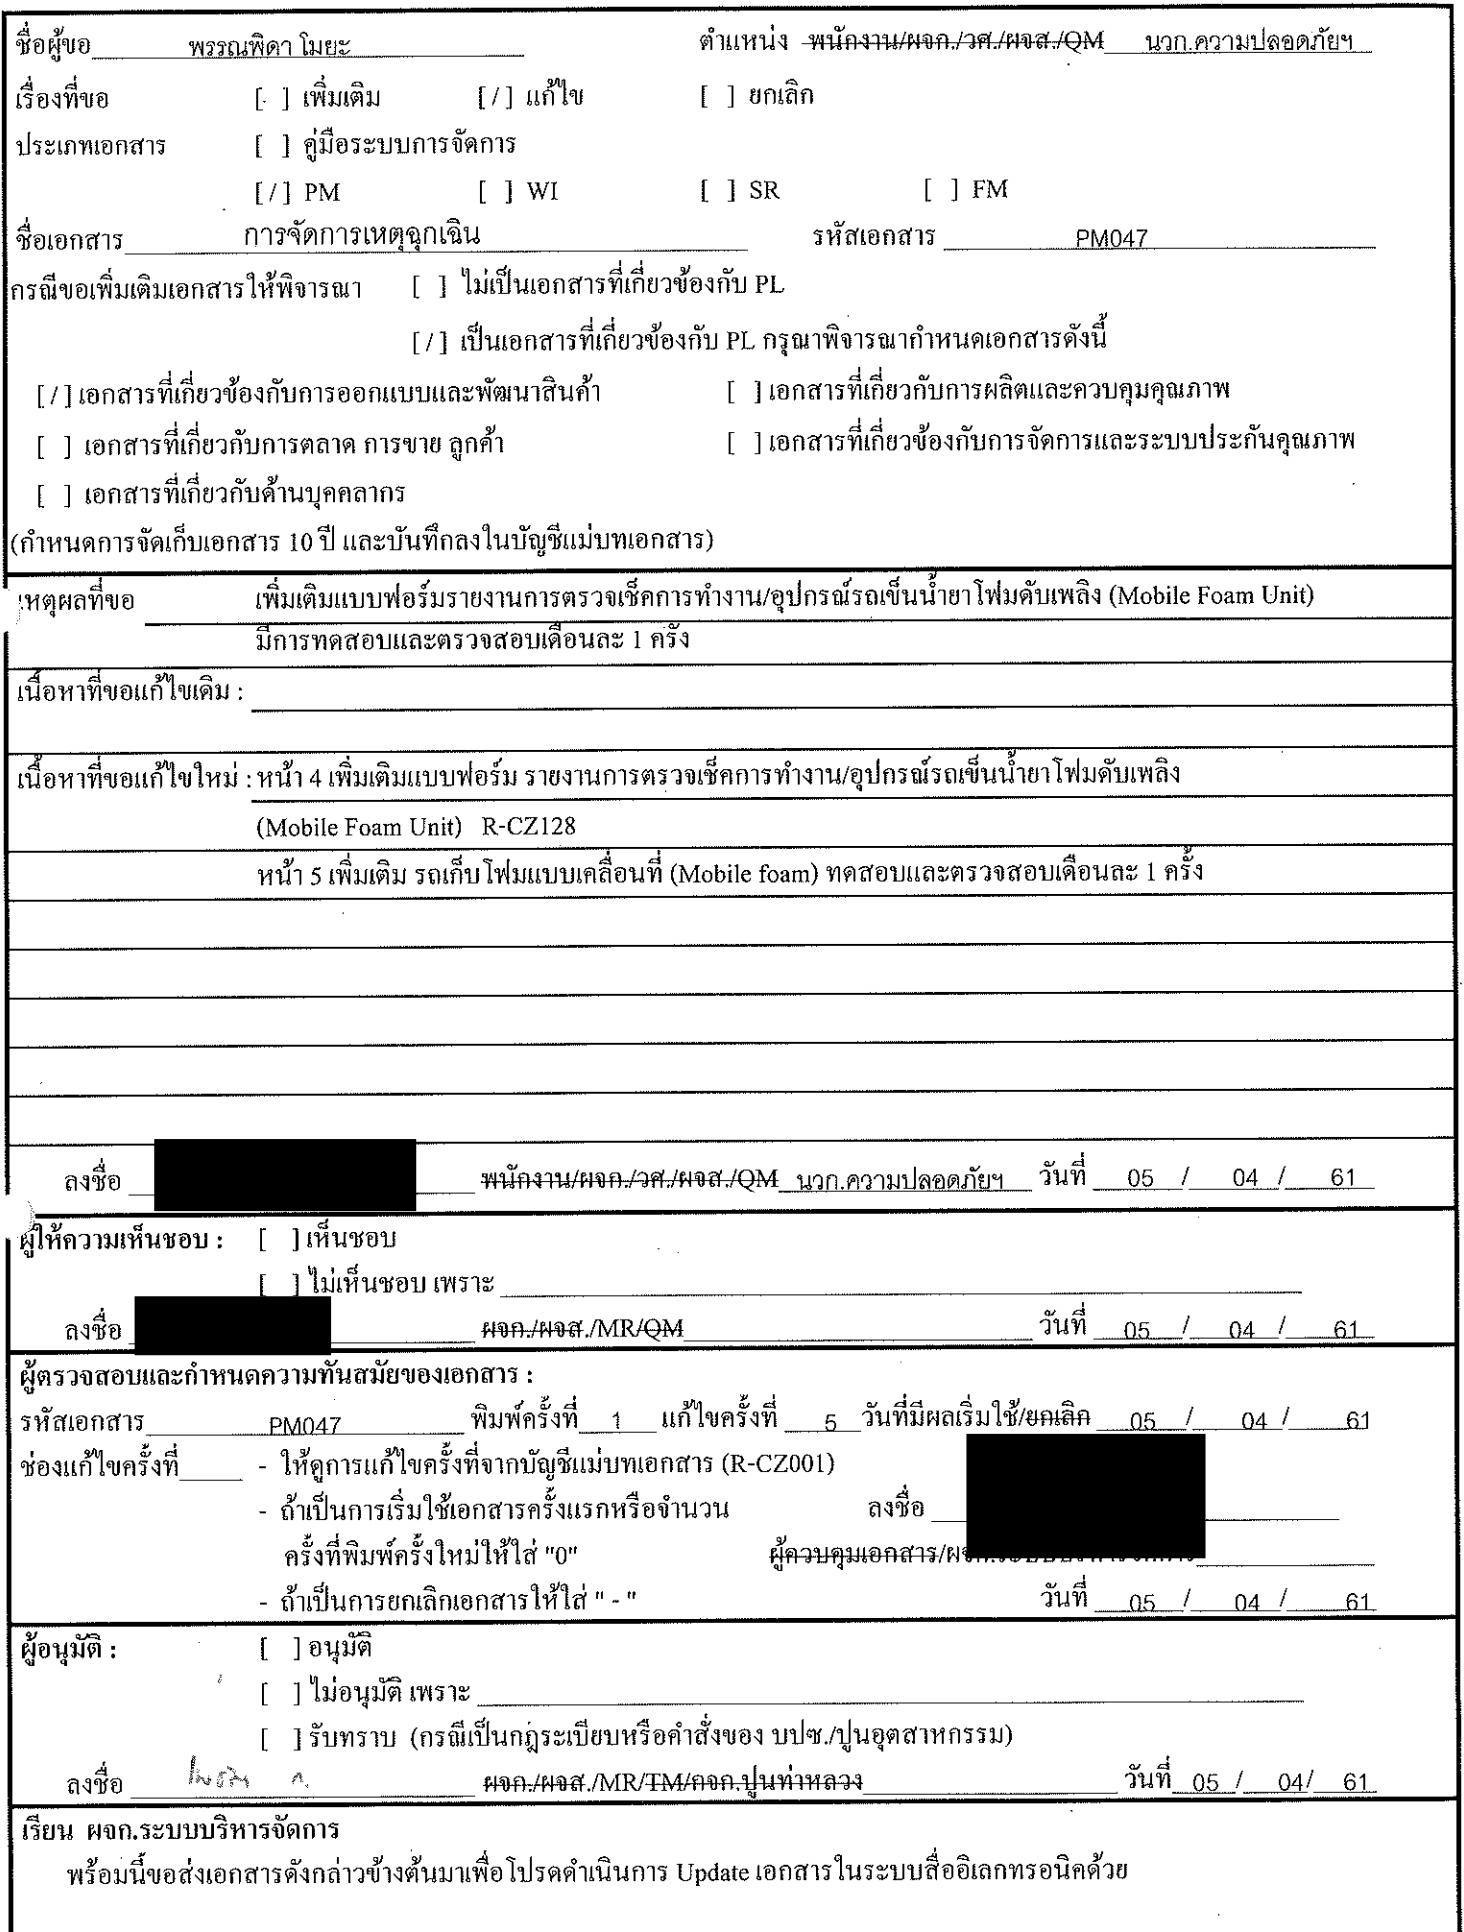 ชื่อผู้ขอ พรรณพิดา โมยะ ตำแหน่ง พนักงาน/ผจก./วศ./ผจส./QM นวก.ความปลอดภัยฯ
เรื่องที่ขอ [ ] เพิ่มเติม [/] แก้ไข [ ] ยกเลิก
ประเภทเอกสาร [ ] คู่มือระบบการจัดการ
[/] PM [ ] WI [ ] SR [ ] FM
ชื่อเอกสาร การจัดการเหตุฉุกเฉิน รหัสเอกสาร PM047
กรณีขอเพิ่มเติมเอกสารให้พิจารณา [ ] ไม่เป็นเอกสารที่เกี่ยวข้องกับ PL
[/] เป็นเอกสารที่เกี่ยวข้องกับ PL กรุณาพิจารณากำหนดเอกสารดังนี้
[/] เอกสารที่เกี่ยวข้องกับการออกแบบและพัฒนาสินค้า [ ] เอกสารที่เกี่ยวกับการผลิตและควบคุมคุณภาพ
[ ] เอกสารที่เกี่ยวกับการตลาด การขาย ลูกค้า [ ] เอกสารที่เกี่ยวข้องกับการจัดการและระบบประกันคุณภาพ
[ ] เอกสารที่เกี่ยวกับด้านบุคคลากร
(กำหนดการจัดเก็บเอกสาร 10 ปี และบันทึกลงในบัญชีแม่บทเอกสาร)
เหตุผลที่ขอ เพิ่มเติมแบบฟอร์มรายงานการตรวจเช็คการทำงาน/อุปกรณ์รถเข็นน้ำยาโฟมดับเพลิง (Mobile Foam Unit)
มีการทดสอบและตรวจสอบเดือนละ 1 ครั้ง
เนื้อหาที่ขอแก้ไขเดิม :
เนื้อหาที่ขอแก้ไขใหม่ : หน้า 4 เพิ่มเติมแบบฟอร์ม รายงานการตรวจเช็คการทำงาน/อุปกรณ์รถเข็นน้ำยาโฟมดับเพลิง
(Mobile Foam Unit) R-CZ128
หน้า 5 เพิ่มเติม รถเก็บโฟมแบบเคลื่อนที่ (Mobile foam) ทดสอบและตรวจสอบเดือนละ 1 ครั้ง
ลงชื่อ พนักงาน/ผจก./วศ./ผจส./QM นวก.ความปลอดภัยฯ วันที่ 05 / 04 / 61
ผู้ให้ความเห็นชอบ : [ ] เห็นชอบ
[ ] ไม่เห็นชอบ เพราะ
ลงชื่อ ผจก./ผจส./MR/QM วันที่ 05 / 04 / 61
ผู้ตรวจสอบและกำหนดความทันสมัยของเอกสาร :
รหัสเอกสาร PM047 พิมพ์ครั้งที่ 1 แก้ไขครั้งที่ 5 วันที่มีผลเริ่มใช้/ยกเลิก 05 / 04 / 61
ช่องแก้ไขครั้งที่ - ให้ดูการแก้ไขครั้งที่จากบัญชีแม่บทเอกสาร (R-CZ001)
- ถ้าเป็นการเริ่มใช้เอกสารครั้งแรกหรือจำนวน ลงชื่อ
ครั้งที่พิมพ์ครั้งใหม่ให้ใส่ "0" ผู้ควบคุมเอกสาร/
- ถ้าเป็นการยกเลิกเอกสารให้ใส่ " - " วันที่ 05 / 04 / 61
ผู้อนุมัติ : [ ] อนุมัติ
[ ] ไม่อนุมัติ เพราะ
[ ] รับทราบ (กรณีเป็นกฎระเบียบหรือคำสั่งของ บปซ./ปูนอุตสาหกรรม)
ลงชื่อ ผจก./ผจส./MR/TM/กจก.ปูนท่าหลวง วันที่ 05 / 04/ 61
เรียน ผจก.ระบบบริหารจัดการ
พร้อมนี้ขอส่งเอกสารดังกล่าวข้างต้นมาเพื่อโปรดดำเนินการ Update เอกสารในระบบสื่ออิเลกทรอนิคด้วย